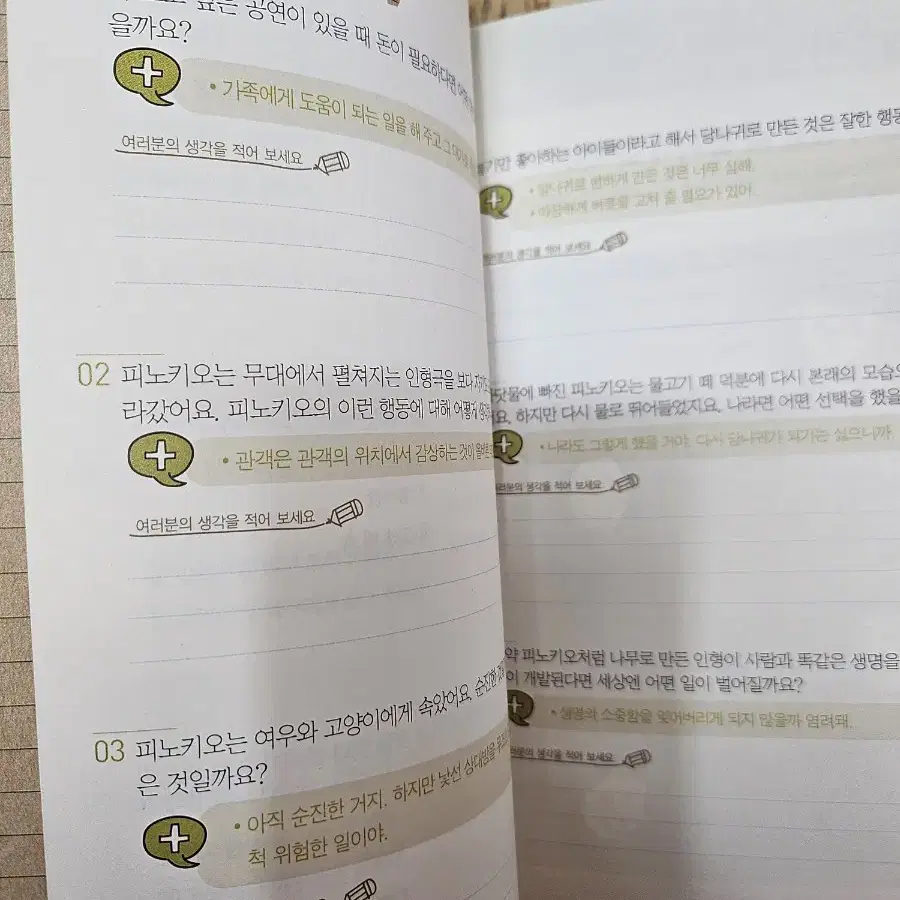 싶은 공연이 있을 때 돈이 필요하다면
을까요?
• 가족에게 도움이 되는 일을 해 주고 그
여러분의 생각을 적어 보세요
02 피노키오는 무대에서 펼쳐지는 인형극을 보다
라갔어요. 피노키오의 이런 행동에 대해 어떻게
• 관객은 관객의 위치에서 감상하는 것이
여러분의 생각을 적어 보세요
03 피노키오는 여우와 고양이에게 속았어요. 순진한
은 것일까요?
• 아직 순진한 거지. 하지만 낯선 상대방을
척 위험한 일이야.
좋아하는 아이들이라고 해서 당나귀로 만든 것은 잘한 행동
• 당나귀로 변하게 만든 것은 너무 심해.
• 따끔하게 버릇을 고쳐 줄 필요가 있어.
생각을 적어 보세요
빠진 피노키오는 물고기 떼 덕분에 다시 본래의 모습으
하지만 다시 물로 뛰어들었지요. 나라면 어떤 선택을 했을
• 나라도 그렇게 했을 거야. 다시 당나귀가 되기는 싫으니까.
여러분의 생각을 적어 보세요
약 피노키오처럼 나무로 만든 인형이 사람과 똑같은 생명을
이 개발된다면 세상엔 어떤 일이 벌어질까요?
• 생명의 소중함을 잊어버리게 되지 않을까 염려돼.
생각을 적어 보세요